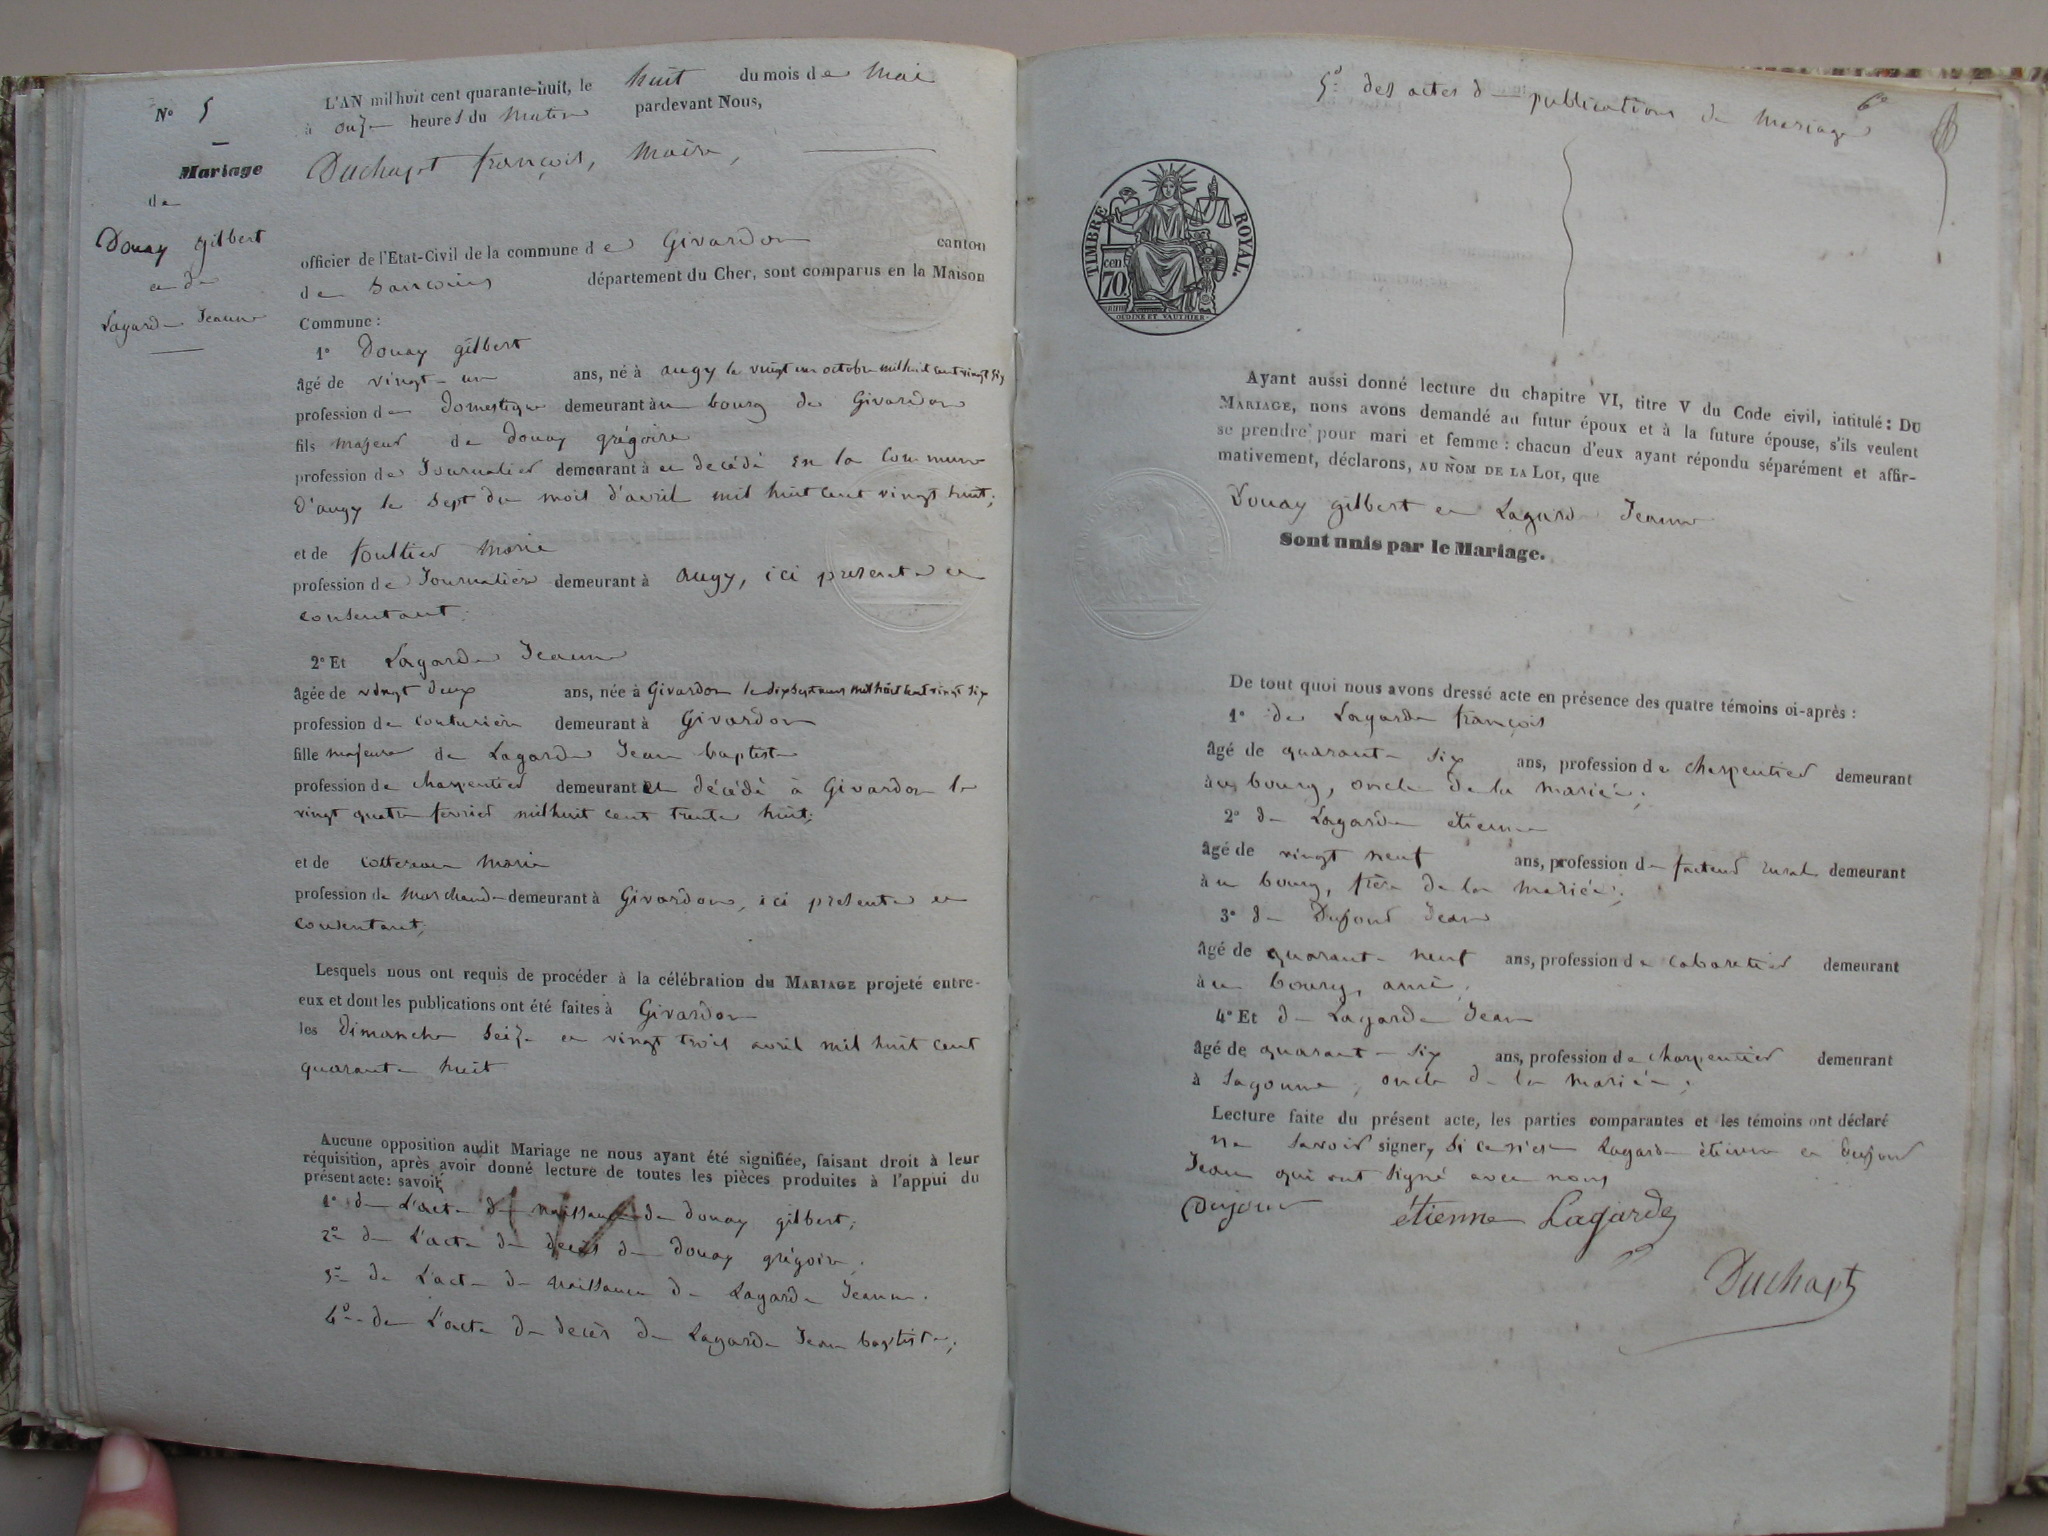 N° 5
Mariage
de
Douay gilbert
et de
Lagarde Jeanne
L'AN mil huit cent quarante-huit, le huit du mois de Mai
à onze heures du Matin pardevant Nous,
Duchapt françois, Maire,
officier de l'Etat-Civil de la commune de Givardon canton
de Sancoins département du Cher, sont comparus en la Maison
Commune :
1° Douay gilbert
âgé de vingt-un ans, né à augy le vingt un octobre mil huit cent vingt six
profession de Domestique demeurant au bourg de Givardon
fils majeur de Douay grégoire
profession de Journalier demeurant à et decédé en la Commune
D'augy le Sept du mois d'avril mil huit cent vingt huit;
et de foultier Marie
profession de Journalière demeurant à Augy, ici presente et
consentant.
2° Et Lagarde Jeanne
âgée de vingt deux ans, née à Givardon le dix sept mars mil huit cent vingt six
profession de couturière demeurant à Givardon
fille majeure de Lagarde Jean baptiste
profession de charpentier demeurant et décédé à Givardon le
vingt quatre fevrier mil huit cent trente huit;
et de cottereau Marie
profession de Marchande demeurant à Givardon, ici presente et
consentant;
Lesquels nous ont requis de procéder à la célébration du MARIAGE projeté entre-
eux et dont les publications ont été faites à Givardon
les Dimanche Seize et vingt trois avril mil huit cent
quarante huit
Aucune opposition audit Mariage ne nous ayant été signifiée, faisant droit à leur
réquisition, après avoir donné lecture de toutes les pièces produites à l'appui du
présent acte: savoir
1° de L'acte de naissance de douay gilbert;
2° de L'acte de decès de Douay grégoire;
3° de L'acte de Naissance de Lagarde Jeanne.
4° de L'acte de decès de Lagarde Jean baptiste;
5° des actes de publications de mariage
6°
TIMBRE ROYAL.
70 cen
OUDINE ET VAUTHIER
Ayant aussi donné lecture du chapitre VI, titre V du Code civil, intitulé : DU
MARIAGE, nous avons demandé au futur époux et à la future épouse, s'ils veulent
se prendre pour mari et femme : chacun d'eux ayant répondu séparément et affir-
mativement, déclarons, AU NOM DE LA LOI, que
Douay gilbert et Lagarde Jeanne
Sont unis par le Mariage.
De tout quoi nous avons dressé acte en présence des quatre témoins ci-après :
1° de Lagarde françois
âgé de quarante six ans, profession de charpentier demeurant
au bourg, oncle de la mariée;
2° de Lagarde étienne
âgé de vingt neuf ans, profession de facteur rural demeurant
au bourg, frère de la mariée;
3° de Dujour Jean
âgé de quarante neuf ans, profession de cabaretier demeurant
au bourg, ami;
4° Et de Lagarde Jean
âgé de quarante-six ans, profession de charpentier demeurant
à Sagonne, oncle de la mariée;
Lecture faite du présent acte, les parties comparantes et les témoins ont déclaré
ne savoir signer, si ce n'est Lagarde étienne et Dujour
Jean qui ont signé avec nous
Dujour étienne Lagarde
Duchapt